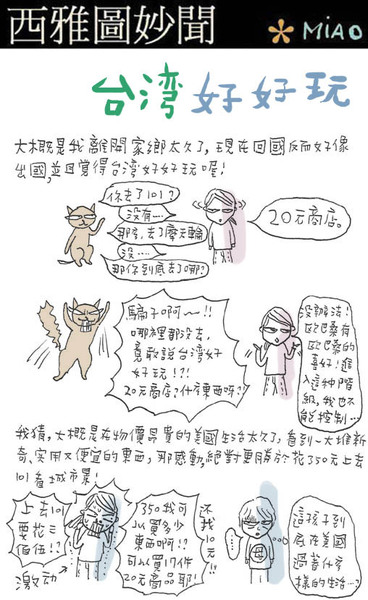 西雅圖妙聞
* MiAO
台湾好好玩
大概是我離開家鄉太久了,現在回國反而好像
出國,並且覺得台湾好好玩喔!
你去了101?
沒有…
那…去了摩天輪
沒…
那你到底去了哪?
20元商店。
騙子啊~!!
哪裡都沒去,
竟敢說台湾好
好玩!?!
20元商店?什麼東西呀??
沒辦法!
歐巴桑有
歐巴桑的
喜好!進
入這种階
級,我也不
能控制…
我猜,大概是在物價昂貴的美國生活太久了,看到一大堆新
奇、実用又便宜的東西,那感動,絕對更勝於花了350元上去
101看城市景!
上去101
要花三
佰伍!?
激动
350我可
以買多少
東西啊!?
可以買17件
20元商品耶!
还找
10元
!!
這孩子到
底在美國
過著什么
樣的生活…?